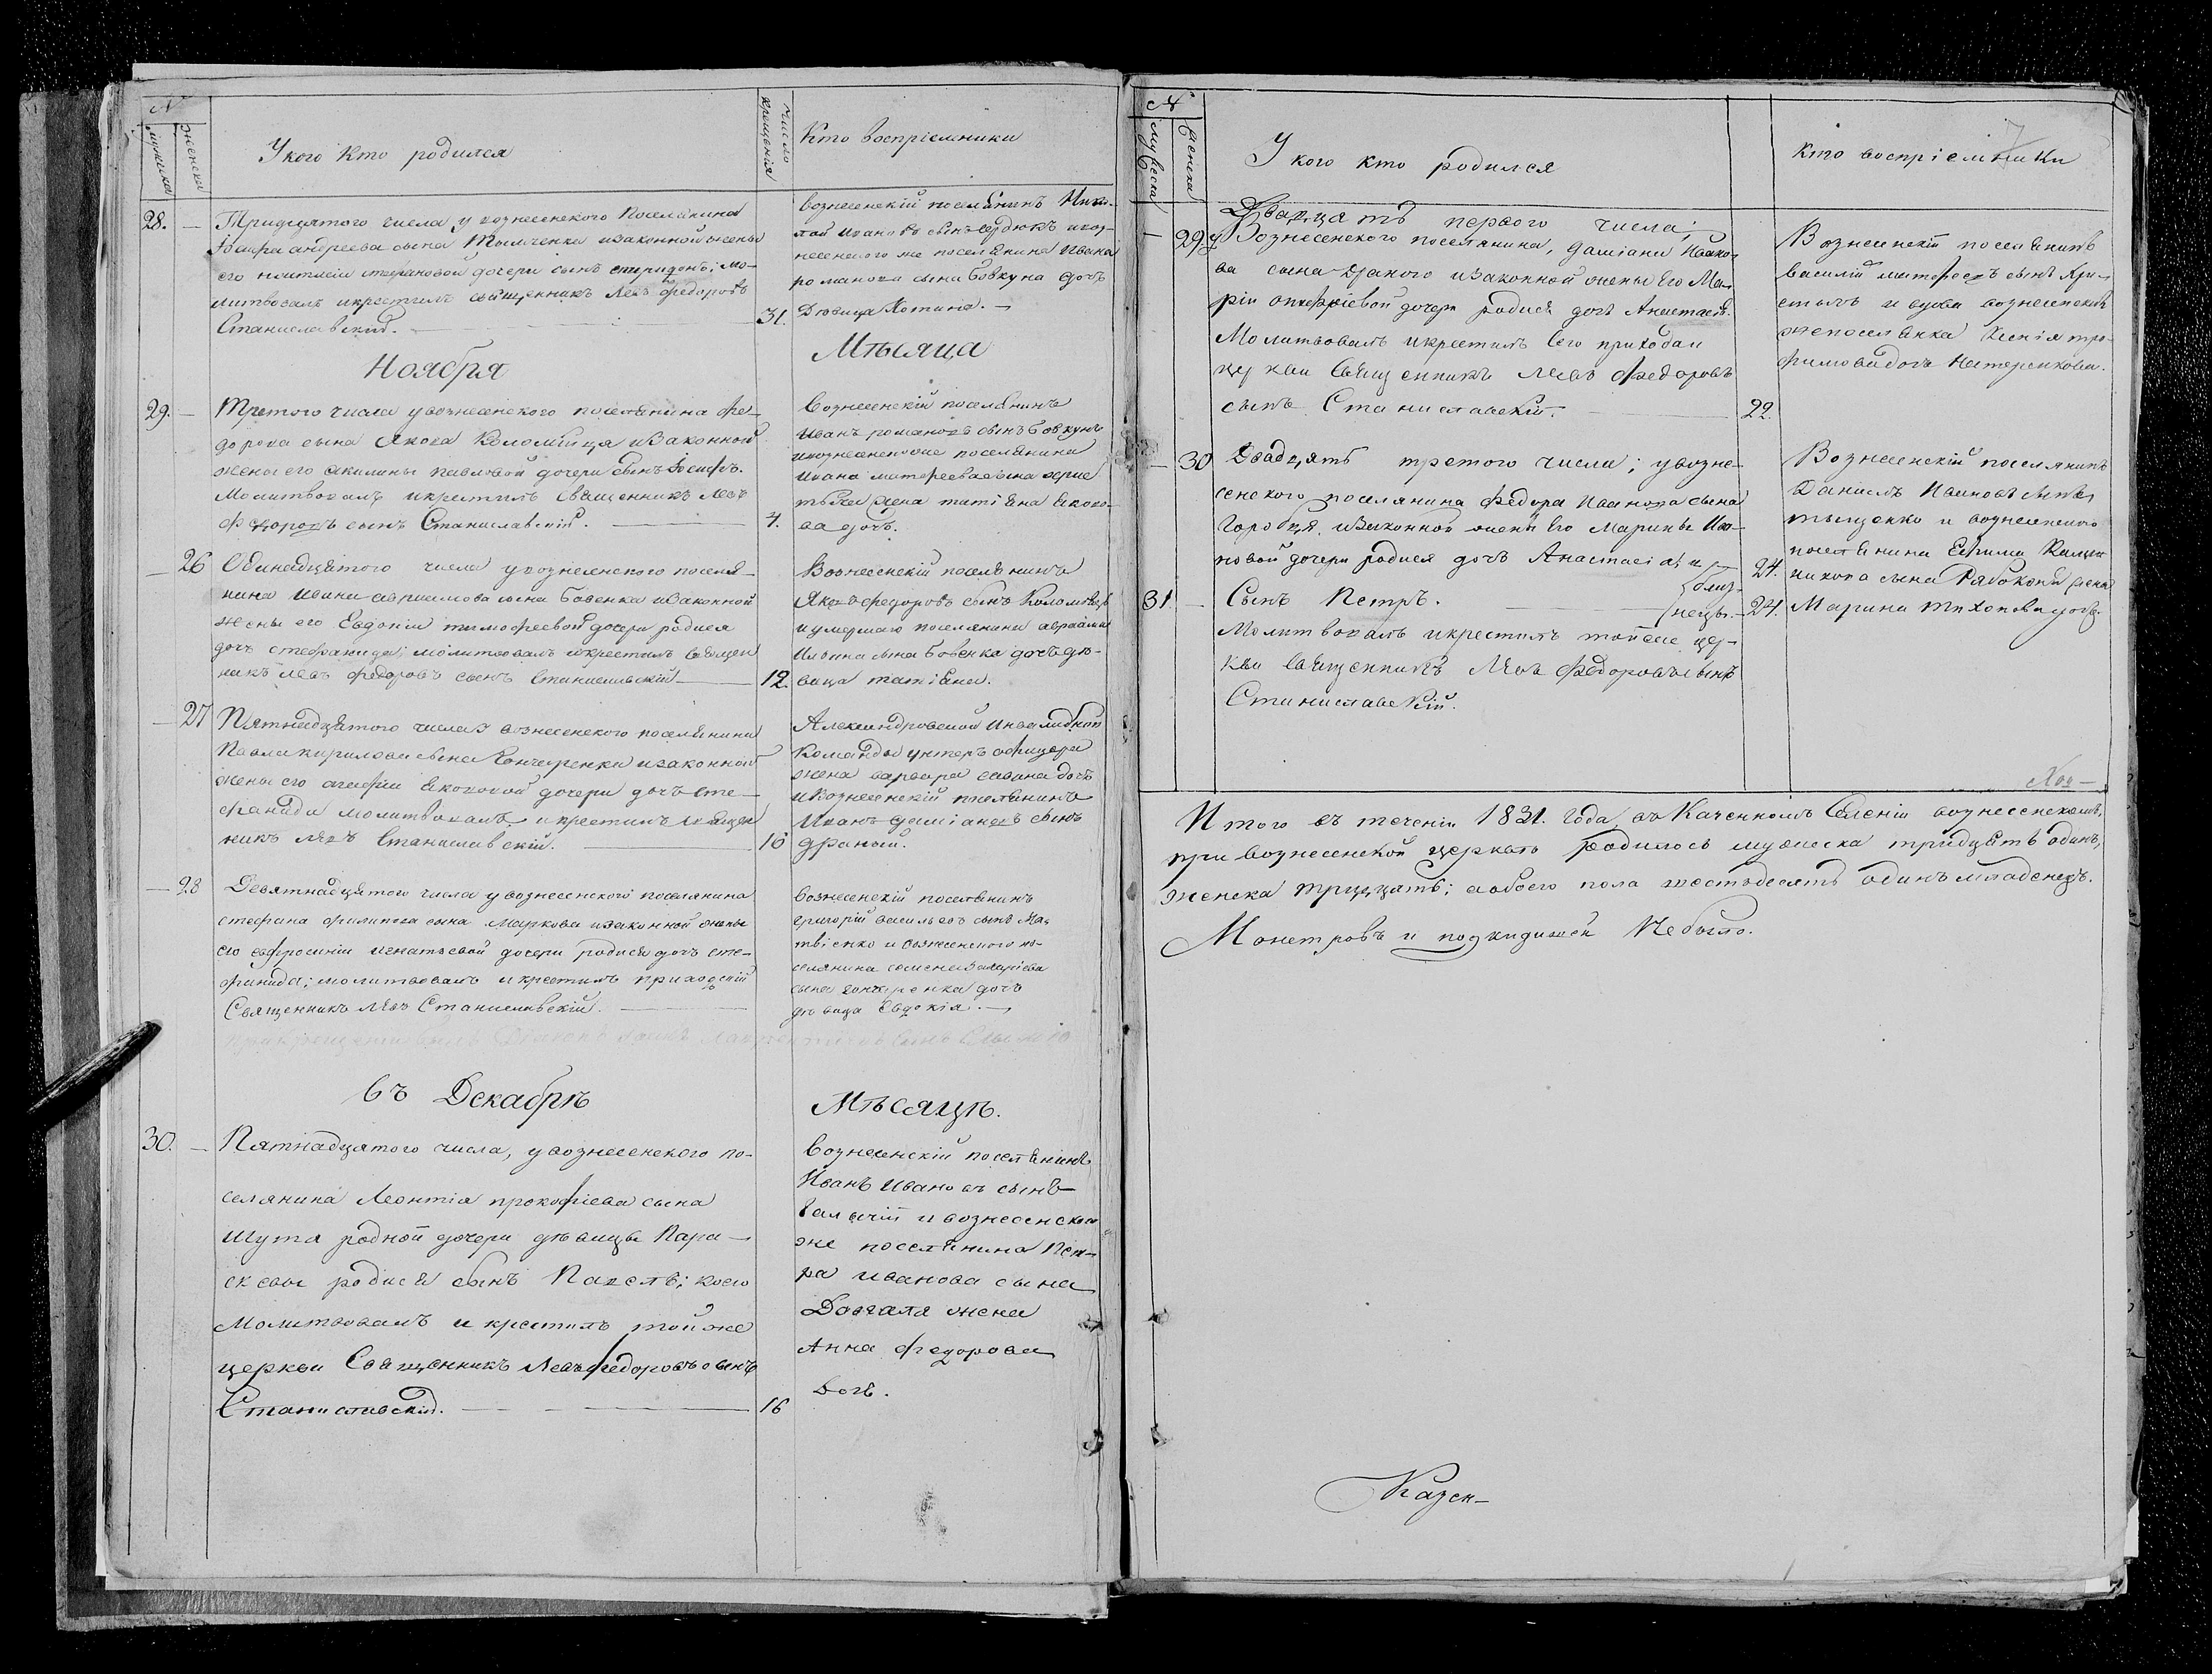 №
мужеска
женска
У кого Кто родился
число
крещенія
Кто воспріемники
28. — Тридцятого числа у вознесенского Поселянина
Іосифа андреева сына изаконной жены
его стефановой дочери сынъ спиридонъ; мо-
литвовалъ икрестилъ священникъ Левъ федоровъ
Станиславскій. — 31.
вознесенскій поселянинъ Нико-
лай Ивановъ сынъ сердюкъ ивоз-
несенского же поселянина Ивана
романова сына бовкуна дочь
Дѣвица —
Ноября
Мѣсяца
29. — Третого числа увознесенского поселянина фе-
дорова сына Якова Коломійця изаконной
жены его акилины павловой дочери сынъ Іосифъ.
Молитвовалъ икрестилъ Священникъ Левъ
федоровъ сынъ Станиславскій. — 4.
Вознесенскій поселянинъ
Иванъ романовъ сынъ бовкунъ
поселянина
Ивана матфеева сына
жена татіяна якове-
ва дочь.
— 26 Одинадцятого числа увознесенского поселя-
нина Ивана аврамова сына бовенка изаконной
жены его Евдокіи тимофеевой дочери родися
дочь стефанида; молитвовалъ икрестилъ священ
никъ левъ федоровъ сынъ Станиславскій — 12.
Вознесенскій поселянинъ
Яковъ федоровъ сынъ Коломіецъ
иумершаго поселянина авраама
Ильина сына бовенка дочь дѣ-
вица татіяна.
— 27 Пятнадцятого числа у вознесенского поселянина
Павла кирилова сына Гончаренка изаконной
жены его агафіи Яковой дочери дочь сте-
фанида молитвовалъ икрестилъ священ
никъ левъ Станиславскій. — 16
Александровской Инвалидной
Команды унтеръ офицера
жена варвара савина дочь
иВознесенскій поселянинъ
Иванъ даміановъ сынъ
драной.
— 28 Девятнадцятого числа увознесенского поселянина
стефана филипова сына Маркова изаконной жены
его ефросиніи игнатьевой дочери родися дочь сте-
фанида; молитвовалъ икрестилъ приходскій
Священникъ левъ Станиславскій. —
вознесенскій поселянинъ
григорій васильевъ сынъ Ма-
твіенко и вознесенского по-
селянина семена
сына гончаренка дочь
дѣвица Евдокія. —
въ Декабрѣ
Мѣсяцѣ.
30. — Пятнадцятого числа, увознесенского по-
селянина Леонтія прокофіева сына
Шута родной дочери дѣвицы Пара-
скевы родися сынъ Павелъ; коего
Молитвовалъ и крестилъ тойже
церкви Священникъ Левъ федоровъ сынъ
Станиславскій. — 16
Вознесенскій поселянинъ
Иванъ Ивановъ сынъ
и вознесенского
же поселянина Пет-
ра иванова сына
Довгаля жена
Анна федорова
Дочь.
№
мужеска
женска
У кого кто родился
кто воспріемники
7
Двадцять первого числа;
— 29 у Вознесенского поселянина, даміана Ивано-
ва сына Драного изаконной жены Его Ма-
ріи онуфріевой дочери родися дочь Анастасія.
Молитвовалъ икрестилъ Сего прихода
церкви Священникъ Левъ Федоровъ
сынъ Станиславскій. — 22.
Вознесенскій поселянинъ
василій матфеевъ сынъ
и вдова вознесенская
жепоселянка Ксенія тро-
фимова дочь Нестеренкова.
— 30 Двадцять третого числа; увозне-
сенского поселянина Федора Иванова сына
Горобця, изаконной жены Его Марины Ива-
новой дочери родися дочь Анастасія и 24.
31 — Сынъ Петръ. — близ-
нецы. — 24.
Молитвовалъ икрестилъ тойже цер-
кви Священникъ Левъ Федоровъ сынъ
Станиславскій.
Вознесенскій поселянинъ
Даніилъ Ивановъ сынъ
тыщенко и вознесенского
поселянина Ефима
сына Рябоконя жена
Марина Тихонова дочь.
Итого въ теченіи 1831. года въ Казенномъ Селеніи вознесенскомъ,
при вознесенской церкви родилось мужеска тридцять одинъ,
женска тридцять; аобоего пола шестьдесятъ одинъ младенецъ.
Монстровъ и подкидишей Небыло.
Казен-